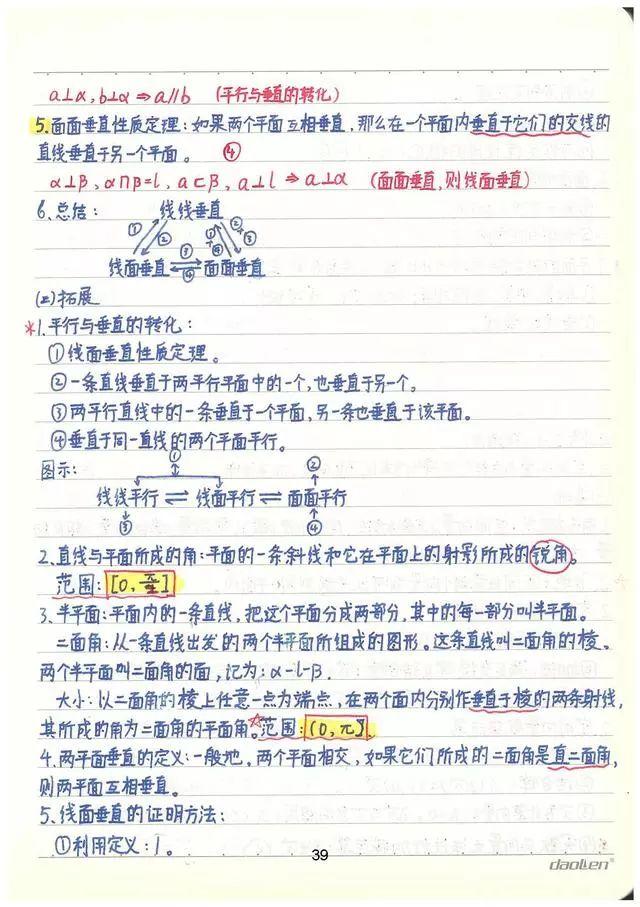 a⊥α, b⊥α ⇒ a∥b (平行与垂直的转化)
5.面面垂直性质定理:如果两个平面互相垂直,那么在一个平面内垂直于它们的交线的
直线垂直于另一个平面。 ④
α⊥β, α∩β=l, a⊂β, a⊥l ⇒ a⊥α (面面垂直,则线面垂直)
6.总结: 线线垂直
① ② ① ④ ② ③
③
线面垂直 ⇌ 面面垂直
④
(二)拓展
*1.平行与垂直的转化:
①线面垂直性质定理。
②一条直线垂直于两平行平面中的一个,也垂直于另一个。
③两平行直线中的一条垂直于一个平面,另一条也垂直于该平面。
④垂直于同一直线的两个平面平行。
图示: ① ②
线线平行 ⇌ 线面平行 ⇌ 面面平行
③ ④
2.直线与平面所成的角:平面的一条斜线和它在平面上的射影所成的锐角。
范围:[0, π/2]
3.半平面:平面内的一条直线,把这个平面分成两部分,其中的每一部分叫半平面。
二面角:从一条直线出发的两个半平面所组成的图形。这条直线叫二面角的棱。
两个半平面叫二面角的面,记为:α-l-β.
大小:以二面角的棱上任意一点为端点,在两个面内分别作垂直于棱的两条射线,
其所成的角为二面角的平面角。☆范围:[0,π]
4.两平面垂直的定义:一般地,两个平面相交,如果它们所成的二面角是直二面角,
则两平面互相垂直。
5.线面垂直的证明方法:
①利用定义:1。
39
daoLen®